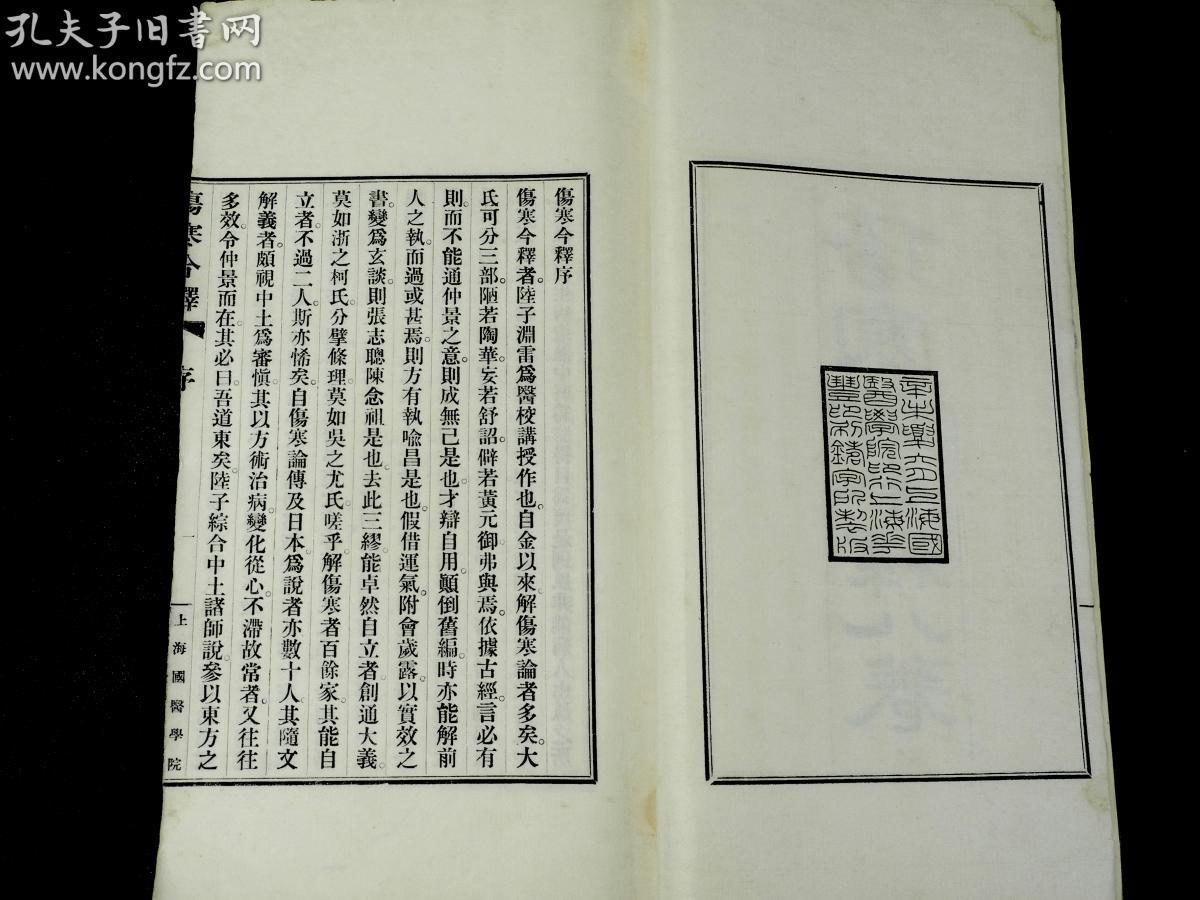 孔夫子旧书网
www.kongfz.com
辛未上海國
醫學院印上海華
豐印刷鑄字所製版
傷寒今釋序
傷寒今釋者。陸子淵雷爲醫校講授作也。自金以來解傷寒論者多矣。大
氏可分三部。陋若陶華。妄若舒詔。僻若黃元御。弗與焉。依據古經。言必有
則。而不能通仲景之意。則成無己是也。才辯自用。顚倒舊編。時亦能解前
人之執。而過或甚焉。則方有執喩昌是也。假借運氣。附會歲露。以實效之
書。變爲玄談。則張志聰陳念祖是也。去此三繆。能卓然自立者。創通大義。
莫如浙之柯氏。分擘條理。莫如吳之尤氏。嗟乎。解傷寒者百餘家。其能自
立者。不過二人。斯亦悕矣。自傷寒論傳及日本。爲說者亦數十人。其隨文
解義者。頗視中土爲審愼。其以方術治病。變化從心。不滯故常者。又往往
多效。令仲景而在。其必曰吾道東矣。陸子綜合中土諸師說。參以東方之
傷寒今釋
序
一
上海國醫學院